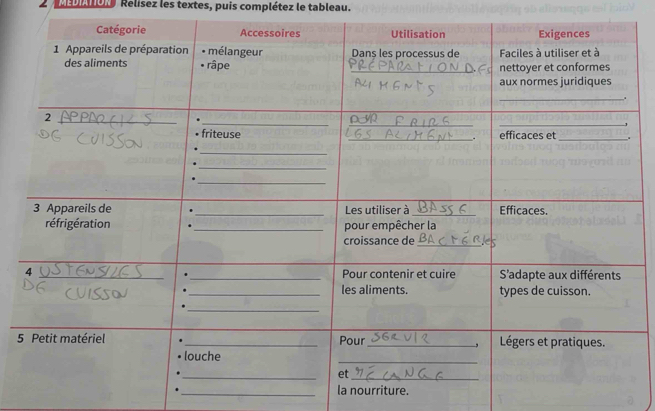 2 MÉDIATION Relisez les textes, puis complétez le tableau.
Catégorie Accessoires Utilisation Exigences
1 Appareils de préparation des aliments
• mélangeur
• râpe
Dans les processus de
PRÉPARATION DES
ALIMENTS
Faciles à utiliser et à
nettoyer et conformes
aux normes juridiques
2 APPAREILS
DE CUISSON
• friteuse
POUR FAIRE,
LES ALIMENT.
efficaces et
3 Appareils de
réfrigération
Les utiliser à BASSE
pour empêcher la
croissance de BACTÉRIES
Efficaces.
4 USTENSILES
DE CUISSON
Pour contenir et cuire
les aliments.
S'adapte aux différents
types de cuisson.
5 Petit matériel
• louche
Pour SERVIR,
et MÉLANGE
la nourriture.
Légers et pratiques.